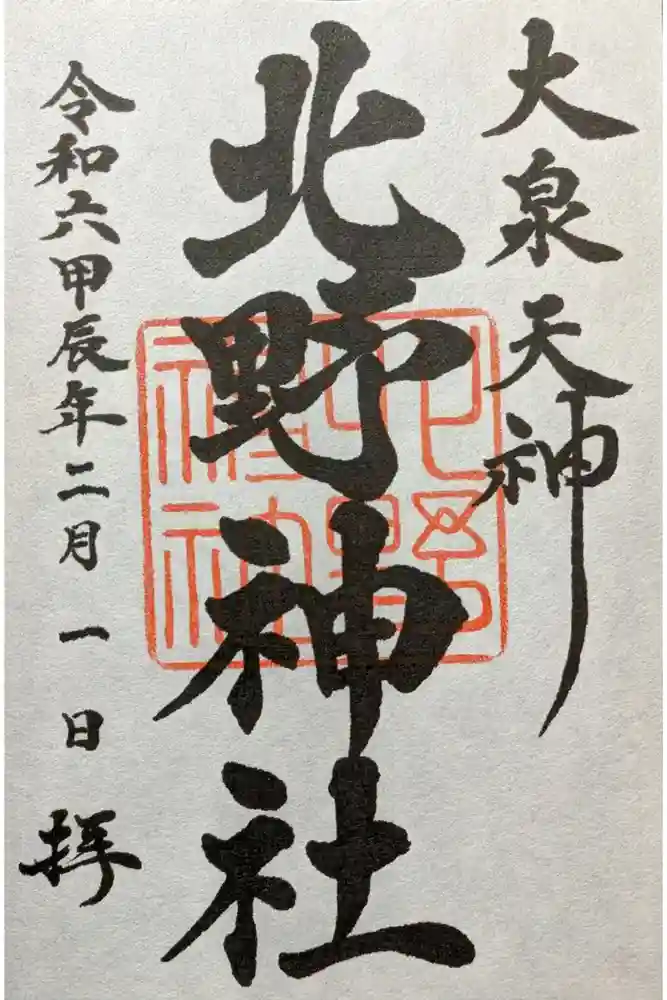 大泉天神
北野神社
令和六甲辰年二月一日拝